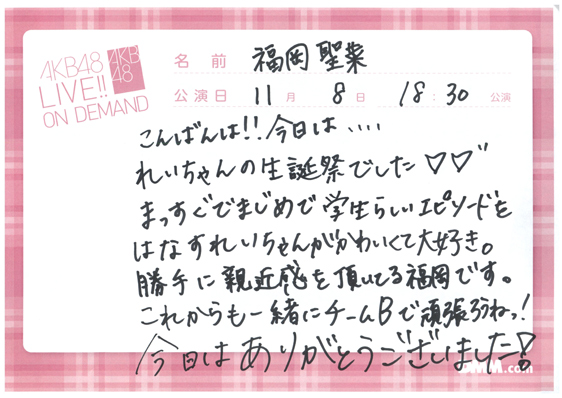 AKB48
LIVE!!
ON DEMAND
AKB
48
名前 福岡聖菜
公演日 11月 8日 18:30 公演
こんばんは!!今日は....
れいちゃんの生誕祭でした♡♡"
まっすぐでまじめで学生らしいエピソードを
はなすれいちゃんがかわいくて大好き。
勝手に親近感を頂いてる福岡です。
これからも一緒にチームBで頑張ろうねっ!
今日はありがとうございました!
DMM.com